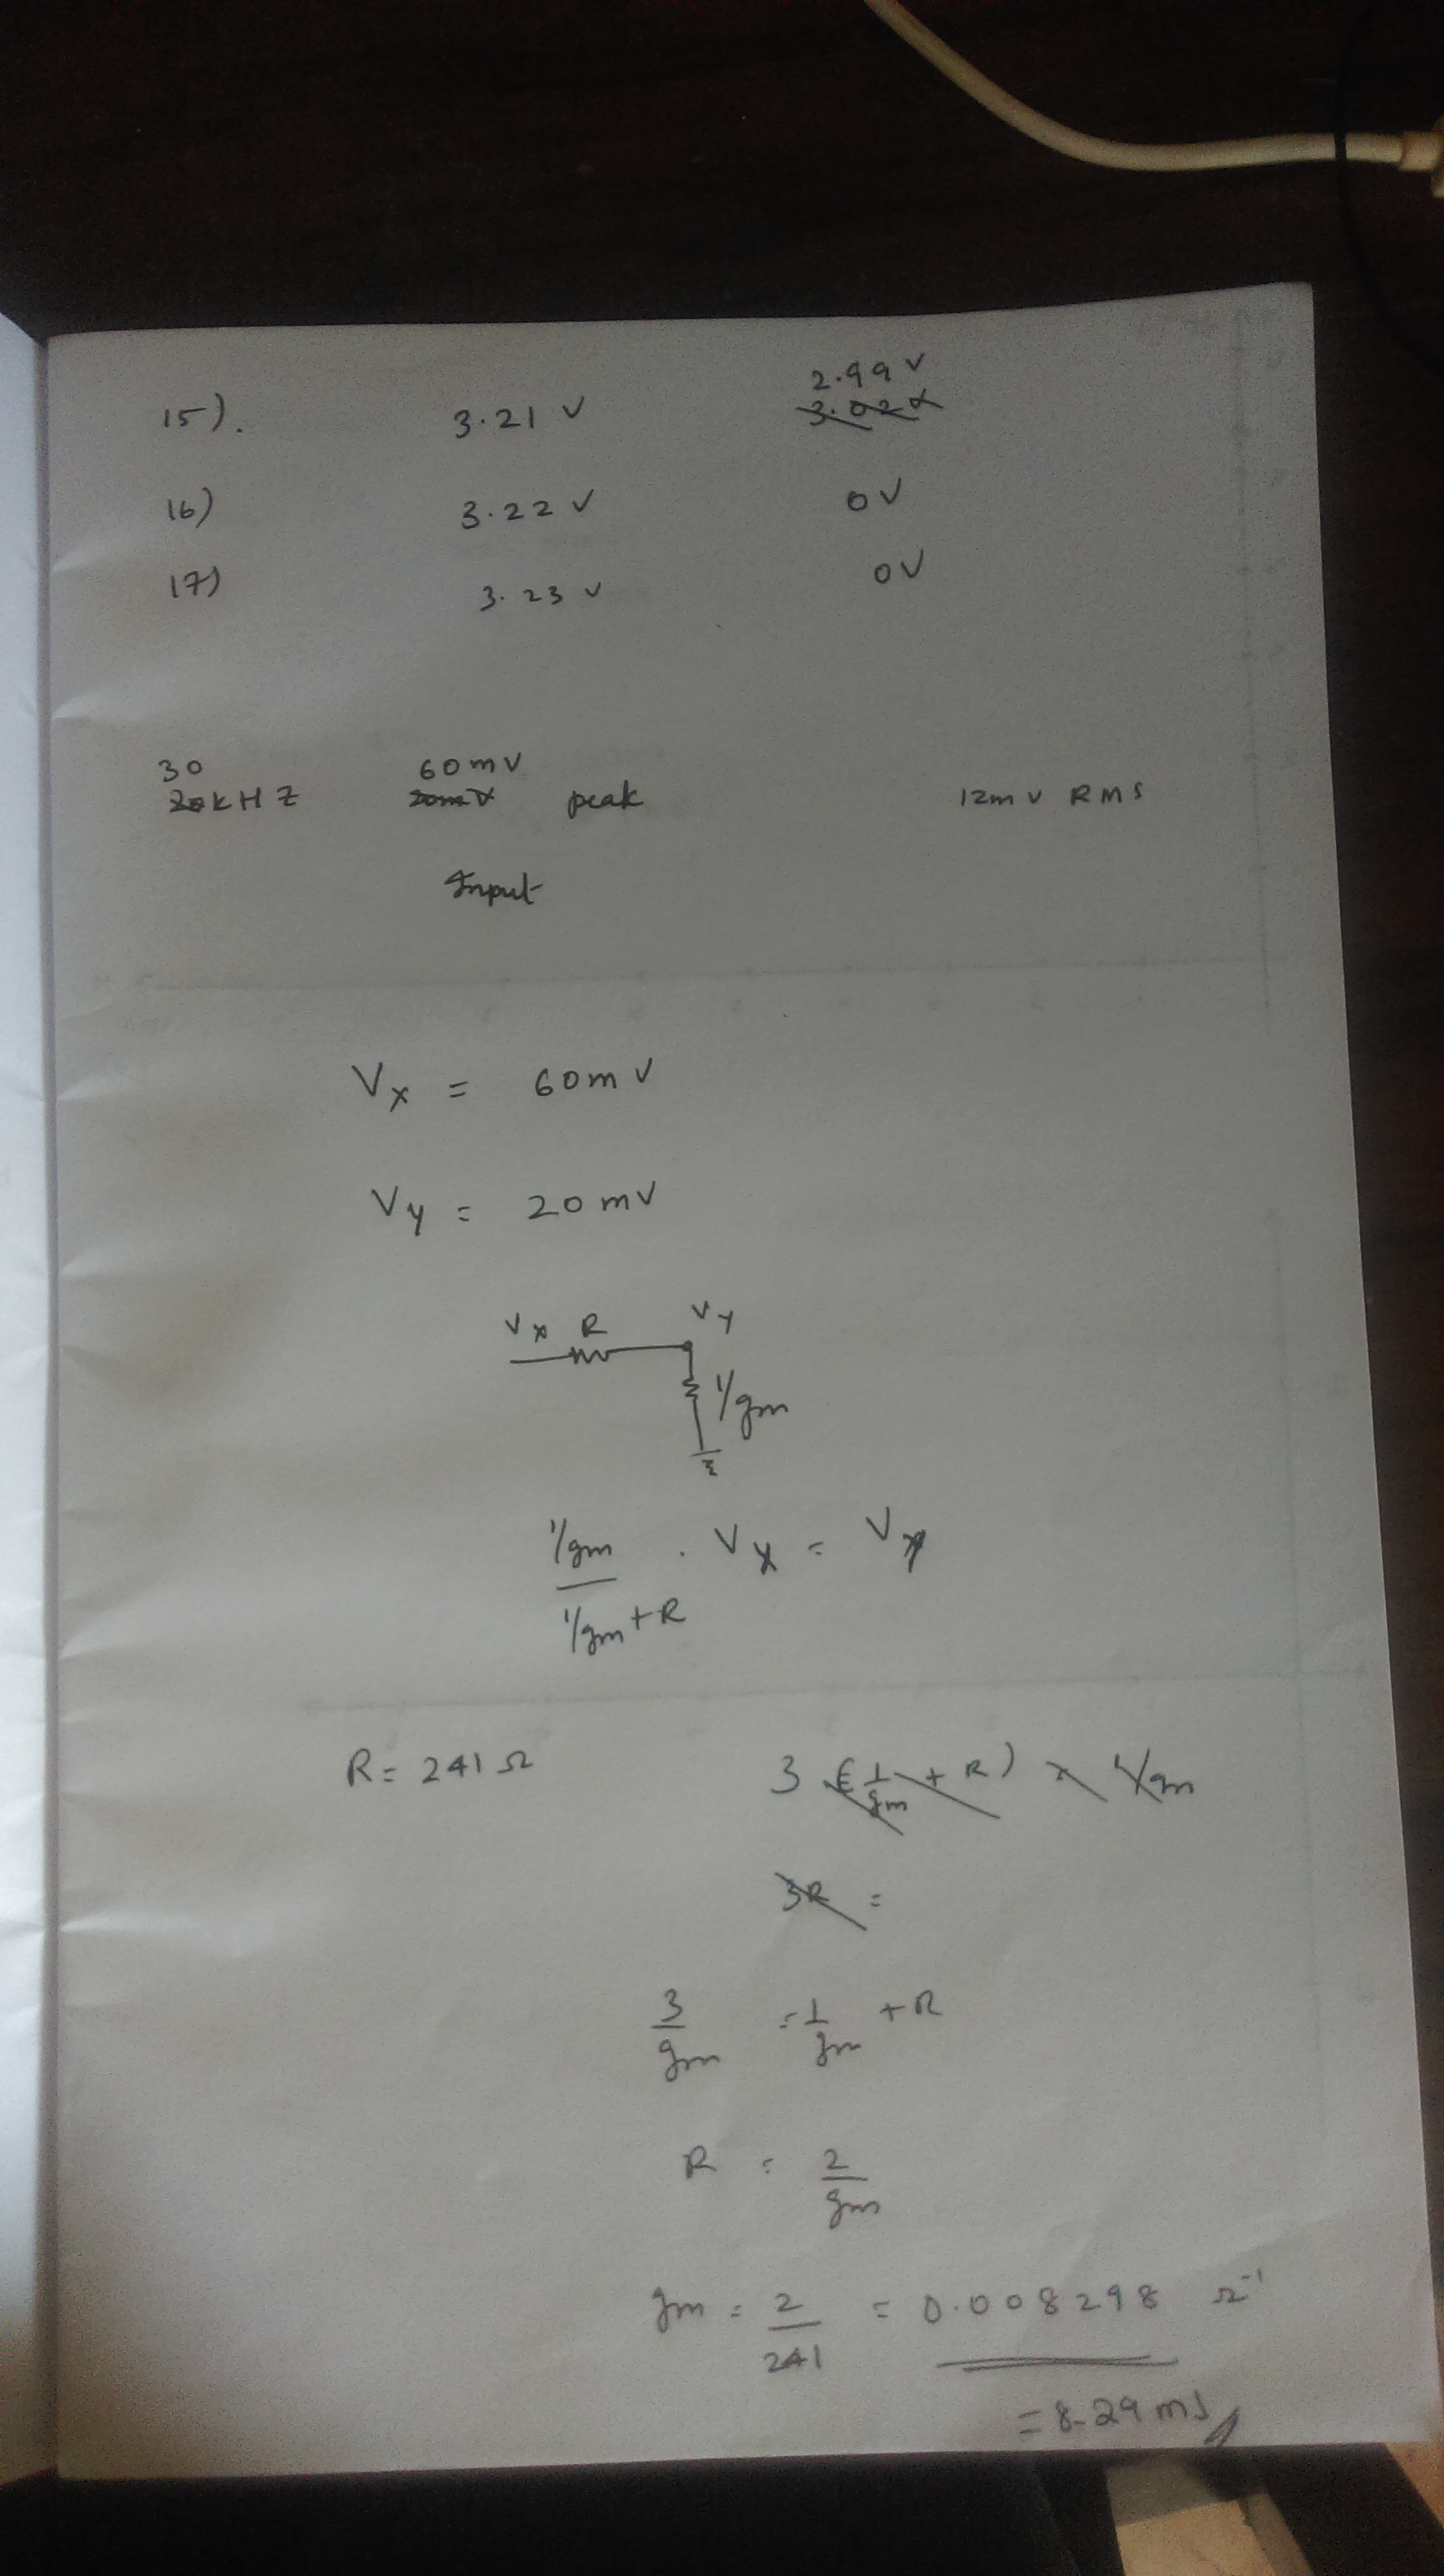 2.99 V
15). 3.21 V 3.02V
16) 3.22 V 0V
17) 3.23 V 0V
30 60mV
20kHZ 20mV peak 12mV RMS
Input
Vx = 60mV
Vy = 20mV
Vx R Vy
1/gm
1/gm . Vx = Vy
1/gm+R
R = 241Ω 3 (1/gm + R) x 1/gm
3R =
3/gm = 1/gm + R
R = 2/gm
gm = 2/241 = 0.008298 Ω⁻¹
= 8.29 mS